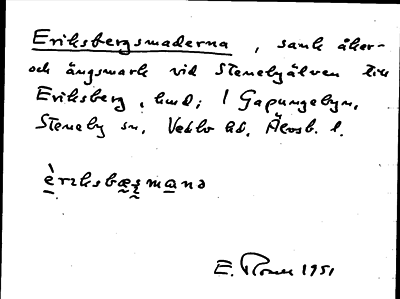 Eriksbergsmaderna, sank åker-
och ängsmark vid Stenebyälven till
Eriksberg, hmd; 1 Gapungebyn,
Steneby sn, Vedbo hd, Älvsb. l.
èrıksbæʂmɑnə
E. 1951